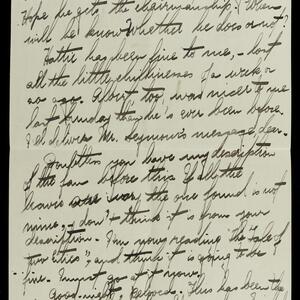 Hope he gets the chairmanship! When
will he know whether he does or not?
Hattie has been fine to me, - lost
all the little chilliness of a week or
so ago. Albert too, was nicer to me
last Sunday than he's ever been before.
I'll deliver Mr. Seymour's message, dear.
Doubtless you have my description
of the fan before this. If all the
leaves were ivory, the one found is not
mine, - don't think it is from your
description. I'm now reading "The Tale of
Two Cities" - and think it is going to be
fine. I must go at it now,
Good-night, beloved. This has been the